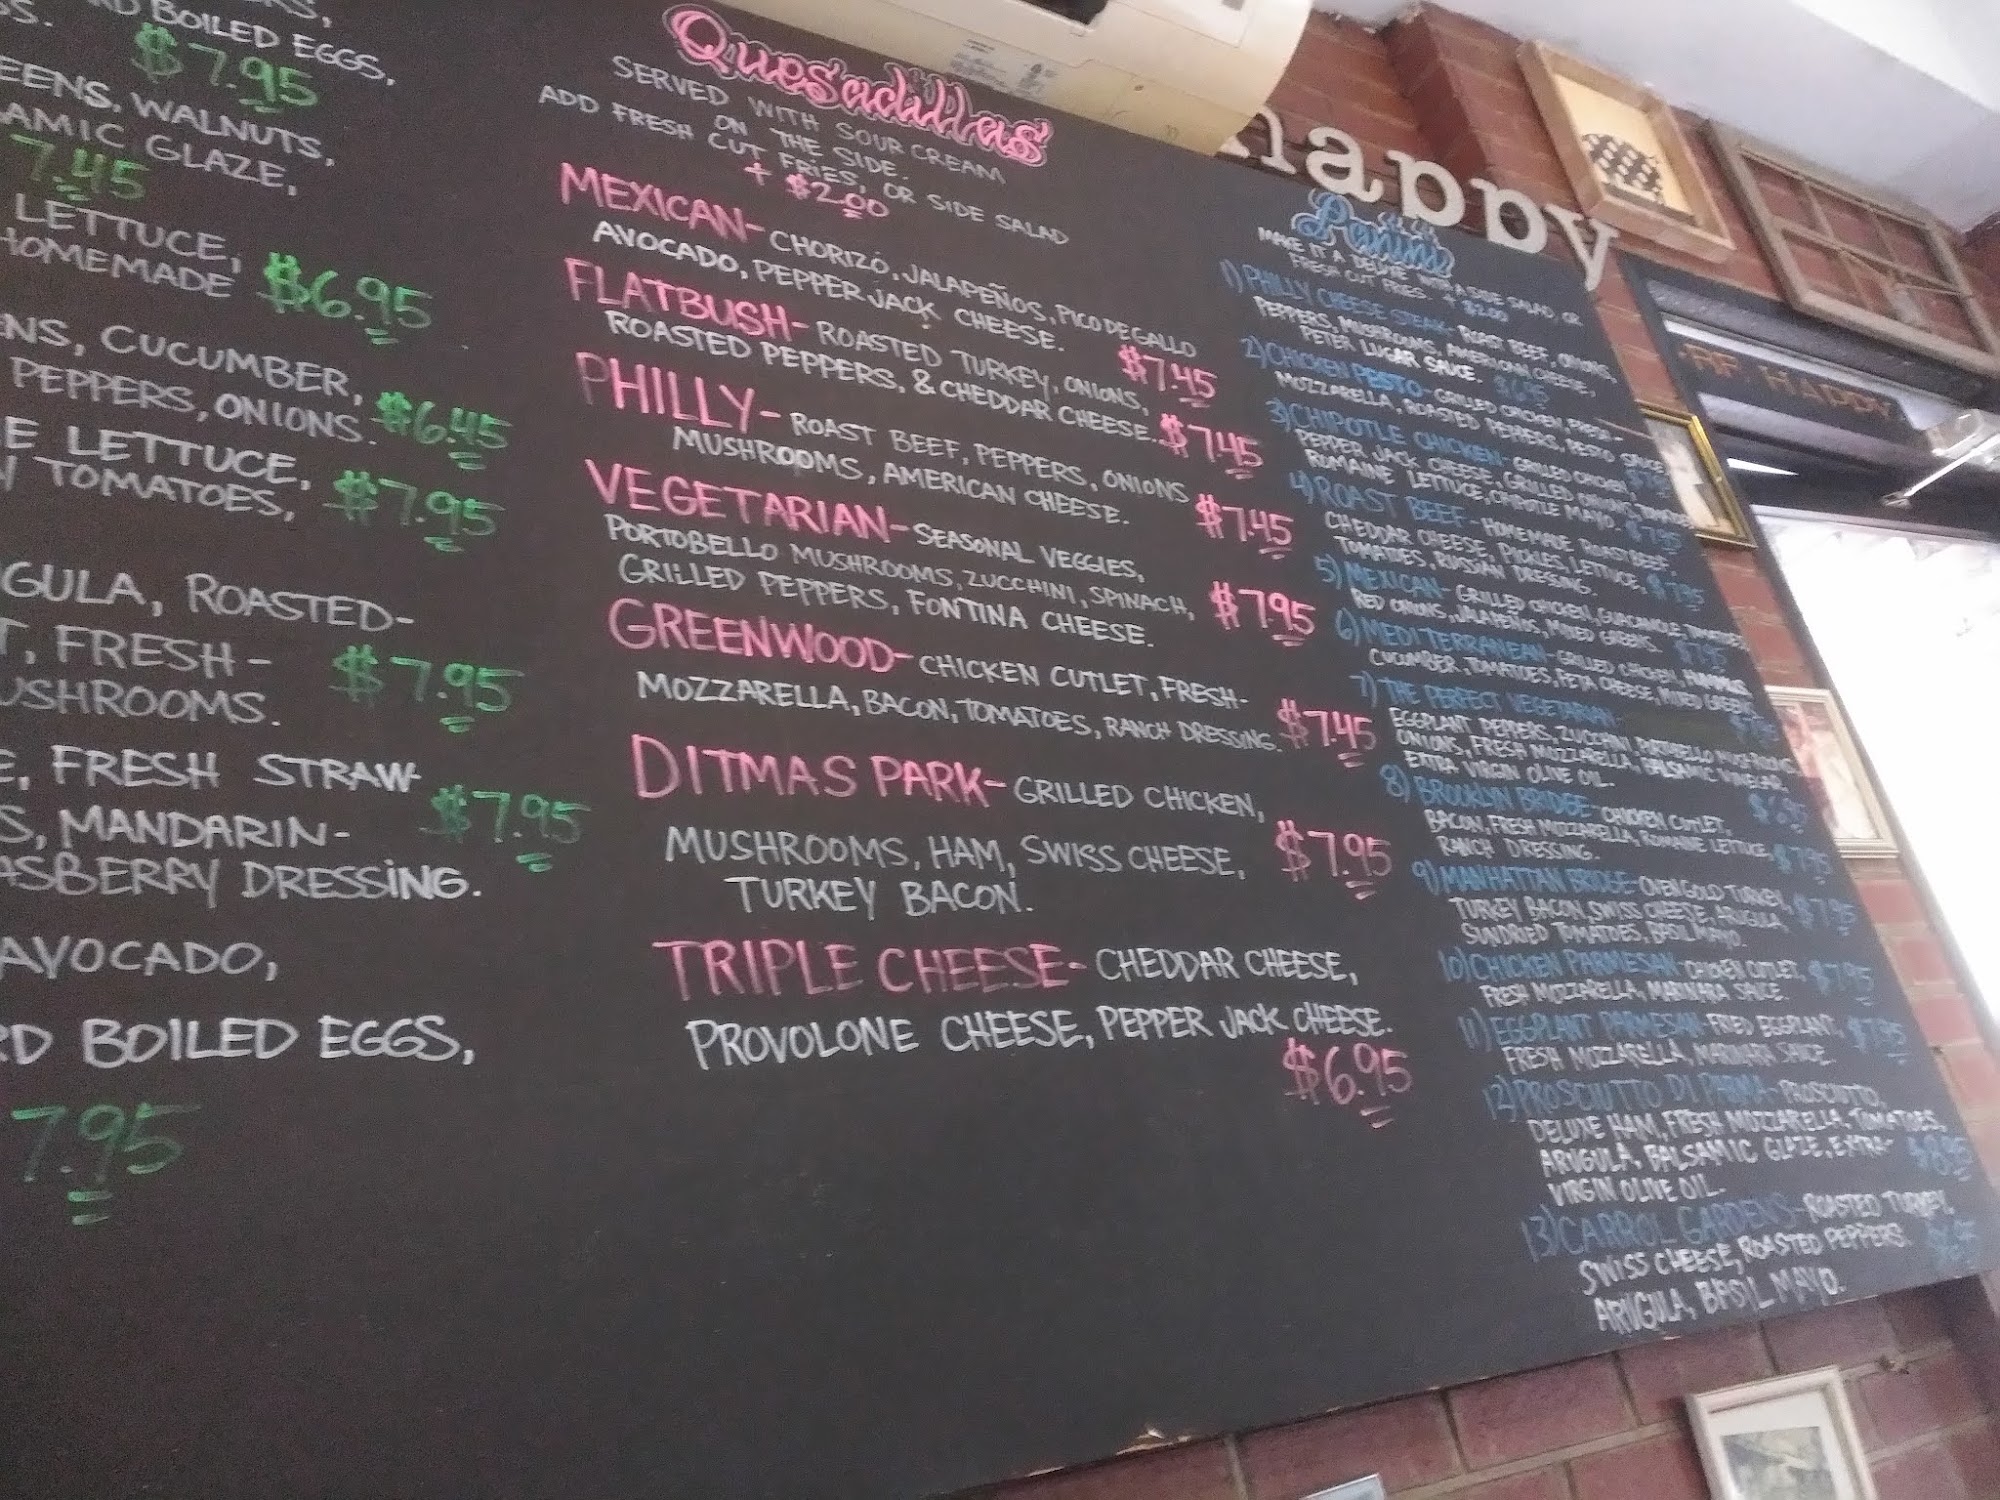 BOILED EGGS,
$7.95
WALNUTS,
GLAZE,
7.45
LETTUCE,
HOMEMADE $6.95
CUCUMBER,
PEPPERS, ONIONS. $6.45
LETTUCE,
TOMATOES, $7.95
ROASTED-
FRESH- $7.95
FRESH STRAW-
MANDARIN- $7.95
DRESSING.
AVOCADO,
BOILED EGGS,
7.95
Quesadillas
SERVED WITH SOUR CREAM
ON THE SIDE.
ADD FRESH CUT FRIES, OR SIDE SALAD
+ $2.00
MEXICAN- CHORIZO, JALAPEÑOS, PICO DE GALLO
AVOCADO, PEPPER JACK CHEESE. $7.45
FLATBUSH- ROASTED TURKEY, ONIONS,
ROASTED PEPPERS, & CHEDDAR CHEESE. $7.45
PHILLY- ROAST BEEF, PEPPERS, ONIONS
MUSHROOMS, AMERICAN CHEESE. $7.45
VEGETARIAN- SEASONAL VEGGIES,
PORTOBELLO MUSHROOMS, ZUCCHINI, SPINACH,
GRILLED PEPPERS, FONTINA CHEESE. $7.95
GREENWOOD- CHICKEN CUTLET, FRESH-
MOZZARELLA, BACON, TOMATOES, RANCH DRESSING. $7.45
DITMAS PARK- GRILLED CHICKEN,
MUSHROOMS, HAM, SWISS CHEESE, $7.95
TURKEY BACON.
TRIPLE CHEESE- CHEDDAR CHEESE,
PROVOLONE CHEESE, PEPPER JACK CHEESE.
$6.95
happy
Panini
MAKE IT A DELUXE WITH A SIDE SALAD, OR
FRESH CUT FRIES. + $2.00
1) PHILLY CHEESE STEAK- ROAST BEEF, ONIONS,
PEPPERS, MUSHROOMS, AMERICAN CHEESE,
PETER LUGAR SAUCE. $6.95
2) CHICKEN PESTO- GRILLED CHICKEN, FRESH-
MOZZARELLA, ROASTED PEPPERS, PESTO SAUCE
3) CHIPOTLE CHICKEN- GRILLED CHICKEN,
PEPPER JACK CHEESE, GRILLED ONIONS, TOMATOES
ROMAINE LETTUCE, CHIPOTLE MAYO. $7.95
4) ROAST BEEF- HOMEMADE ROAST BEEF,
CHEDDAR CHEESE, PICKLES, LETTUCE,
TOMATOES, RUSSIAN DRESSING. $7.95
5) MEXICAN- GRILLED CHICKEN, GUACAMOLE, TOMATOES
RED ONIONS, JALAPEÑOS, MIXED GREENS. $7.95
6) MEDITERRANEAN- GRILLED CHICKEN, HUMMUS
CUCUMBER, TOMATOES, FETA CHEESE, MIXED GREENS
7) THE PERFECT VEGETARIAN-
EGGPLANT PEPPERS, ZUCCHINI, PORTOBELLO MUSHROOMS
ONIONS, FRESH MOZZARELLA, BALSAMIC VINEGAR,
EXTRA VIRGIN OLIVE OIL. $6.95
8) BROOKLYN BRIDGE- CHICKEN CUTLET,
BACON, FRESH MOZZARELLA, ROMAINE LETTUCE, $7.95
RANCH DRESSING.
9) MANHATTAN BRIDGE- OVENGOLD TURKEY,
TURKEY BACON, SWISS CHEESE, ARUGULA, $7.95
SUNDRIED TOMATOES, BASIL MAYO.
10) CHICKEN PARMESAN- CHICKEN CUTLET, $7.95
FRESH MOZZARELLA, MARINARA SAUCE.
11) EGGPLANT PARMESAN- FRIED EGGPLANT, $7.95
FRESH MOZZARELLA, MARINARA SAUCE.
12) PROSCIUTTO DI PARMA- PROSCIUTTO,
DELUXE HAM, FRESH MOZZARELLA, TOMATOES,
ARUGULA, BALSAMIC GLAZE, EXTRA- $8.95
VIRGIN OLIVE OIL.
13) CARROL GARDENS- ROASTED TURKEY,
SWISS CHEESE, ROASTED PEPPERS. $6.95
ARUGULA, BASIL MAYO.
HAPPY